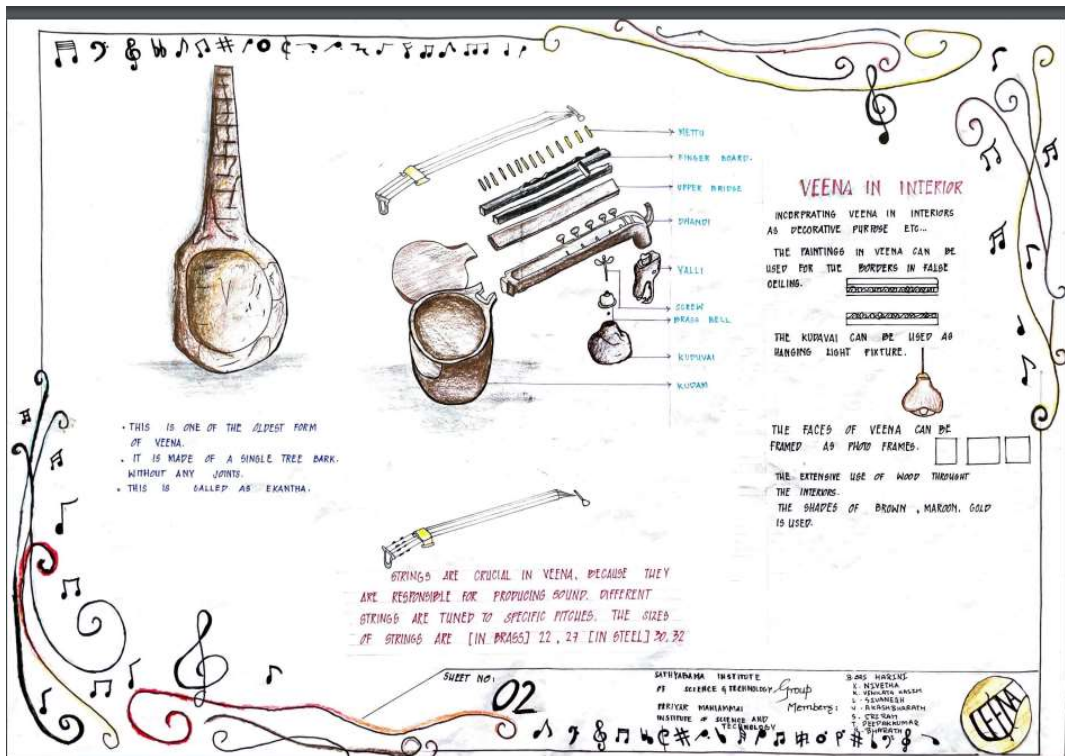 • THIS IS ONE OF THE OLDEST FORM
OF VEENA.
• IT IS MADE OF A SINGLE TREE BARK.
WITHOUT ANY JOINTS.
• THIS IS CALLED AS EKANTHA.
METTU
FINGER BOARD.
UPPER BRIDGE
DHANDI
YALLI
SCREW
BRASS BELL
KUDUVAI
KUDAM
STRINGS ARE CRUCIAL IN VEENA, BECAUSE THEY
ARE RESPONSIBLE FOR PRODUCING SOUND. DIFFERENT
STRINGS ARE TUNED TO SPECIFIC PITCHES. THE SIZES
OF STRINGS ARE [IN BRASS] 22, 27 [IN STEEL] 30, 32
VEENA IN INTERIOR
INCORPRATING VEENA IN INTERIORS
AS DECORATIVE PURPOSE ETC...
THE PAINTINGS IN VEENA CAN BE
USED FOR THE BORDERS IN FALSE
CEILING.
THE KUDAVAI CAN BE USED AS
HANGING LIGHT FIXTURE.
THE FACES OF VEENA CAN BE
FRAMED AS PHOTO FRAMES.
THE EXTENSIVE USE OF WOOD THROUGHT
THE INTERIORS.
THE SHADES OF BROWN, MAROON, GOLD
IS USED.
SHEET NO:
02
SATHYABAMA INSTITUTE
OF SCIENCE & TECHNOLOGY
PERIYAR MANIAMMAI
INSTITUTE OF SCIENCE AND
TECHNOLOGY
Group
Members:
HARINI
K. NIVETHA
L. SIVANESH
V. AKASHBHARATH
S. SRIRAM
T. DEEPAKKUMAR
BHARATH
VEENA